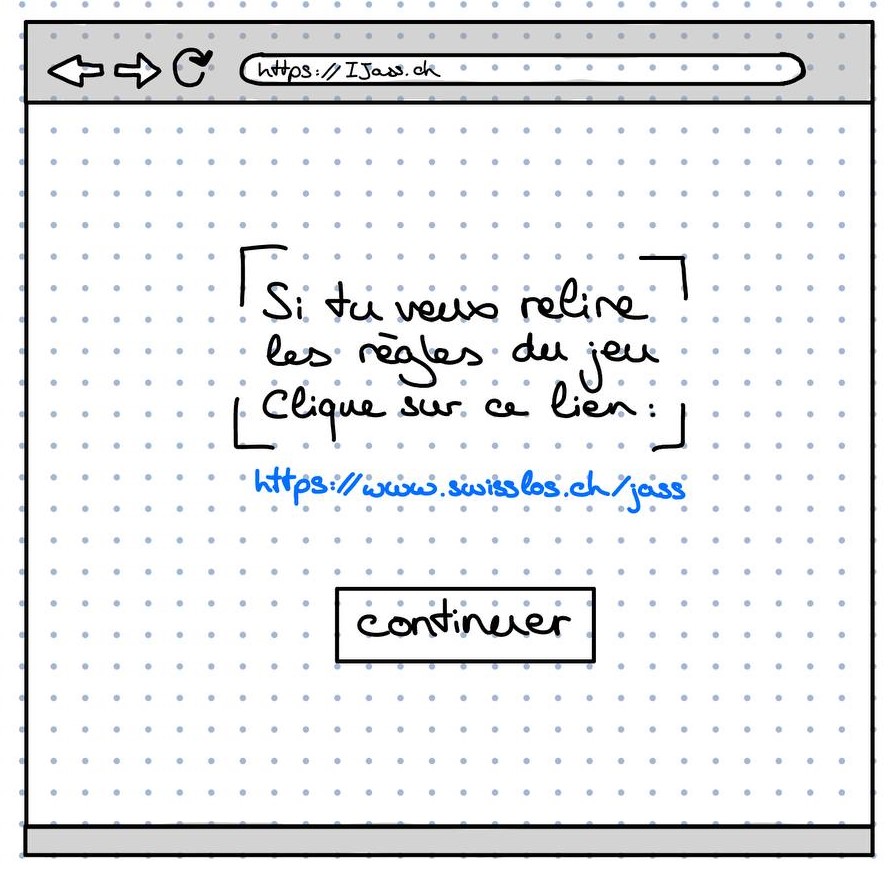 https://IJass.ch
Si tu veux relire
les règles du jeu
Clique sur ce lien:
https://www.swisslos.ch/jass
continuer